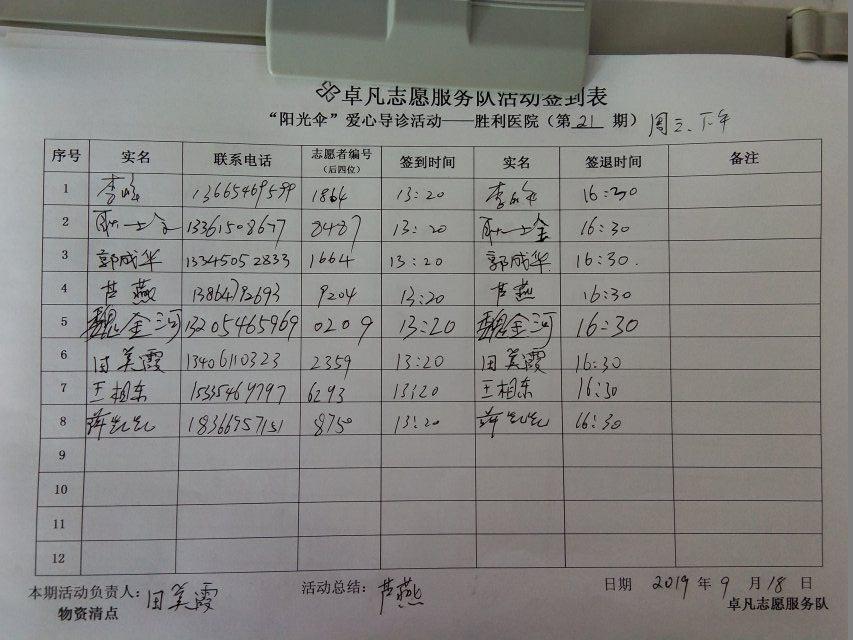 卓凡志愿服务队活动签到表
“阳光伞”爱心导诊活动——胜利医院（第 21 期） 周三、下午
序号 实名 联系电话 志愿者编号（后四位） 签到时间 实名 签退时间 备注
1 李峰 13665469599 1864 13:20 李峰 16:30
2 13361508677 8487 13:20 16:30
3 郭成华 13345052833 1664 13:20 郭成华 16:30.
4 芦燕 13864792693 9204 13:20 芦燕 16:30
5 魏金河 13205465969 0209 13:20 魏金河 16:30
6 田美霞 13406110323 2359 13:20 田美霞 16:30
7 王相东 15335469797 6293 13:20 王相东 16:30
8 18366957151 8750 13:20 16:30
9
10
11
12
本期活动负责人：田美霞 活动总结：芦燕 日期 2019 年 9 月 18 日
物资清点 卓凡志愿服务队